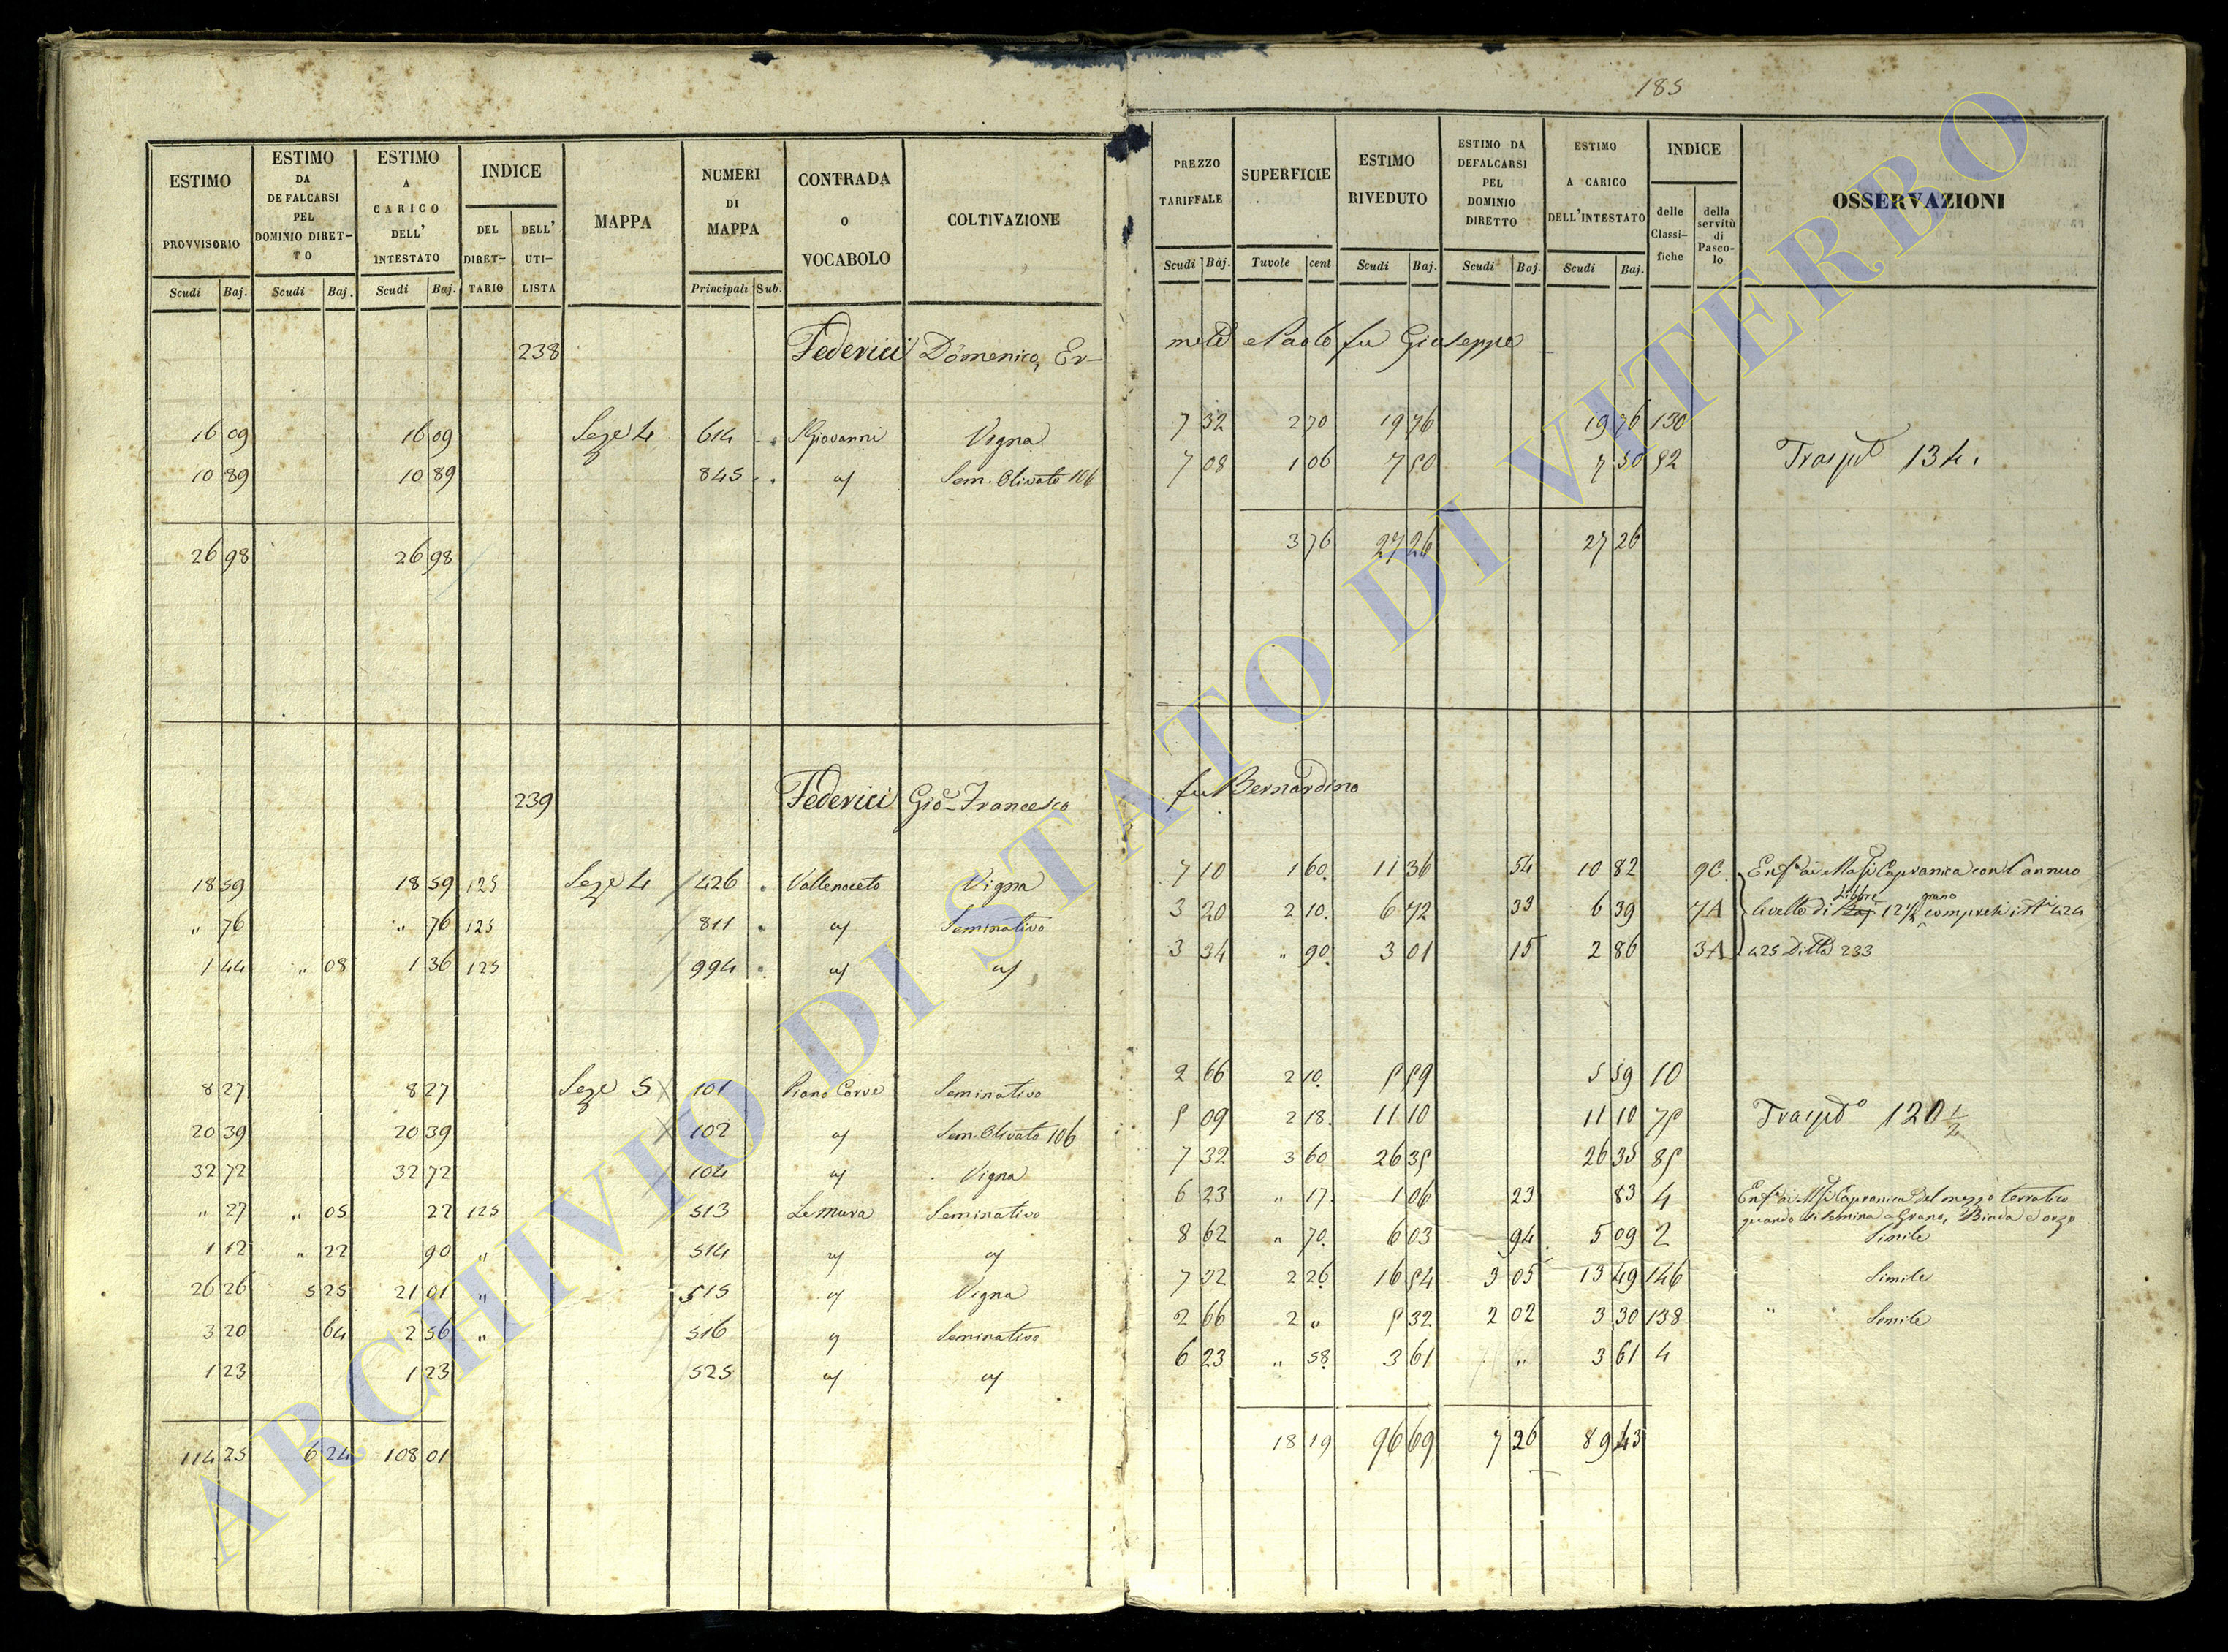 185
ESTIMO PROVVISORIO | ESTIMO DA DEFALCARSI PEL DOMINIO DIRET-TO | ESTIMO A CARICO DELL' INTESTATO | INDICE DEL DIRET-TARIO | DELL' UTI-LISTA | MAPPA | NUMERI DI MAPPA | CONTRADA O VOCABOLO | COLTIVAZIONE | PREZZO TARIFFALE | SUPERFICIE | ESTIMO RIVEDUTO | ESTIMO DA DEFALCARSI PEL DOMINIO DIRETTO | ESTIMO A CARICO DELL'INTESTATO | INDICE delle Classi-fiche | della servitù di Pasco-lo | OSSERVAZIONI
Scudi Baj. | Scudi Baj. | Scudi Baj. | Principali Sub. | Scudi Baj. | Tavole cent. | Scudi Baj. | Scudi Baj. | Scudi Baj.
238 Federici Domenico, Er- meld e Paolo fu Giuseppe
16 09 | 16 09 | Sezze 4 | 614 | S Giovanni | Vigna | 7 32 | 2 70 | 19 76 | 19 76 | 130
10 89 | 10 89 | 845 | " | Sem. Olivato 106 | 7 08 | 1 06 | 7 50 | 7 50 | 92 | 134.
26 98 | 26 98 | 3 76 | 27 26 | 27 26
239 Federici Gio Francesco fu Bernardino
18 59 | 18 59 | 125 | Sezze 4 | 426 | Vallenoceto | Vigna | 7 10 | 1 60 | 11 36 | 54 | 10 82 | 9C | Capranica con l'annuo
" 76 | " 76 | 125 | 811 | " | Seminativo | 3 20 | 2 10 | 6 72 | 33 | 6 39 | 7A | livello di Libbre 12 1/2 grano compresi i 424
1 44 | " 08 | 1 36 | 125 | 994 | " | " | 3 34 | " 90 | 3 01 | 15 | 2 86 | 3A | 425 Ditta 233
8 27 | 8 27 | Sezze 5 | 101 | Piano Corve | Seminativo | 2 66 | 2 10 | 5 59 | 5 59 | 10
20 39 | 20 39 | 102 | " | Sem. Olivato 106 | 5 09 | 2 18 | 11 10 | 11 10 | 75 | 120 1/2
32 72 | 32 72 | 104 | " | Vigna | 7 32 | 3 60 | 26 35 | 26 35 | 85
" 27 | " 05 | 22 | 125 | 513 | Le mura | Seminativo | 6 23 | " 17 | 1 06 | 23 | 83 | 4 | Capranica del mezzo terratico
quando si semina a Grano, Biada e orzo
1 12 | " 22 | 90 | " | 514 | " | " | 8 62 | " 70 | 6 03 | 94 | 5 09 | 2 | Simile
26 26 | 5 25 | 21 01 | " | 515 | " | Vigna | 7 32 | 2 26 | 16 54 | 3 05 | 13 49 | 146 | Simile
3 20 | 64 | 2 56 | " | 516 | " | Seminativo | 2 66 | 2 " | 5 32 | 2 02 | 3 30 | 138 | " Simile
1 23 | 1 23 | 525 | " | " | 6 23 | " 58 | 3 61 | " | 3 61 | 4
114 25 | 6 24 | 108 01 | 18 19 | 96 69 | 7 26 | 89 43
ARCHIVIO DI STATO DI VITERBO